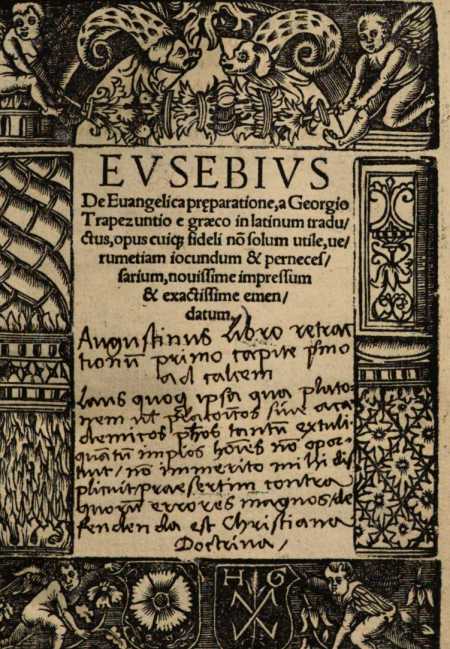 EVSEBIVS
De Euangelica preparatione, a Georgio
Trapezuntio e græco in latinum tradu/
ctus, opus cuiqȝ fideli nō solum utile, ue/
rumetiam iocundum & perneces/
sarium, nouissime impressum
& exactissime emen/
datum.
Augustinus libro retrac
tionū primo capite pīmo
ad calcem
Laus quoqȝ ipsa qua plato
nem ut̄ platonicos siue aca
demicos pħos tantū extuli
quantū impios hoīes nō opor
tuit / nō immerito mihi dis
plicuit / praesertim contra
quorū errores magnos / de
fendenda est Christiana
Doctrina /
H G